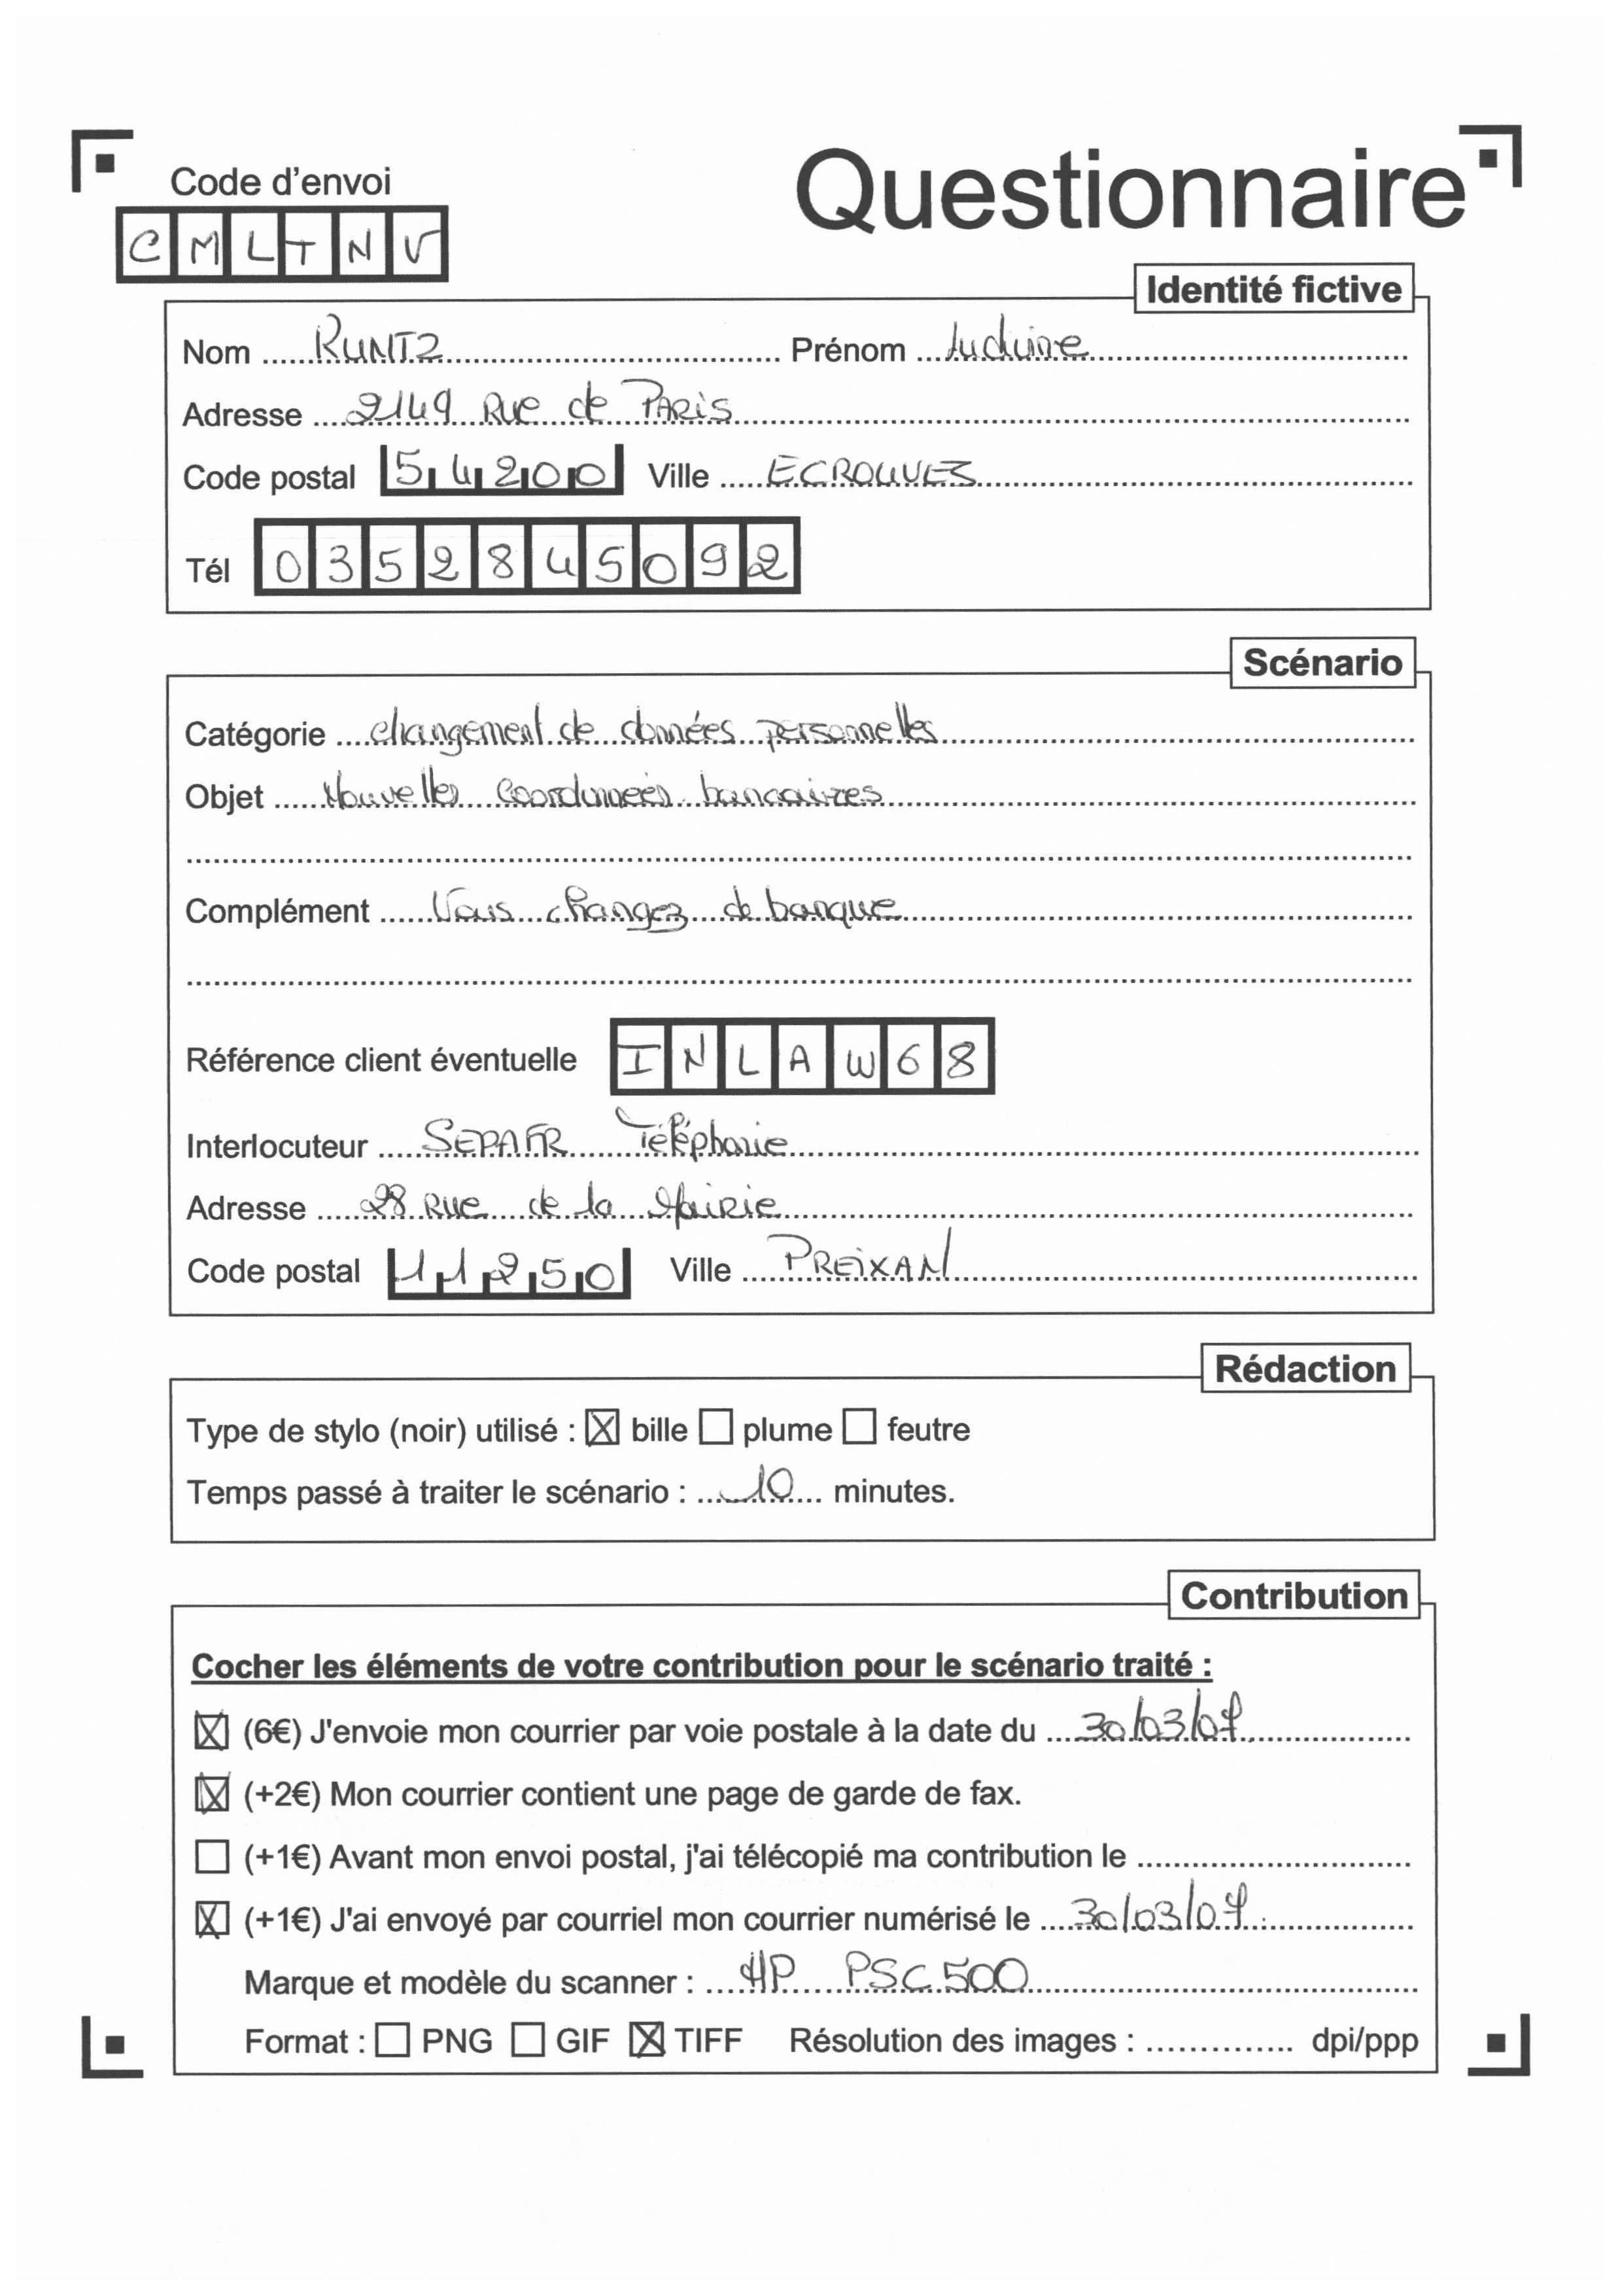 Code d'envoi
Questionnaire
C M L T N V
Identité fictive
Nom RUNTZ Prénom Ludivine
Adresse 2149 Rue de PARIS
Code postal 54200 Ville ECROUVES
Tél 0352845092
Scénario
Catégorie changement de données personnelles
Objet Nouvelles Coordonnées bancaires
Complément Vous changez de banque
Référence client éventuelle INLAW68
Interlocuteur SEPAFR Téléphonie
Adresse 28 Rue de la Mairie
Code postal 11250 Ville PREIXAN
Rédaction
Type de stylo (noir) utilisé : ☒ bille ☐ plume ☐ feutre
Temps passé à traiter le scénario : 10 minutes.
Contribution
Cocher les éléments de votre contribution pour le scénario traité :
☒ (6€) J'envoie mon courrier par voie postale à la date du 30/03/07
☒ (+2€) Mon courrier contient une page de garde de fax.
☐ (+1€) Avant mon envoi postal, j'ai télécopié ma contribution le
☒ (+1€) J'ai envoyé par courriel mon courrier numérisé le 30/03/07
Marque et modèle du scanner : HP PSC 500
Format : ☐ PNG ☐ GIF ☒ TIFF Résolution des images : dpi/ppp